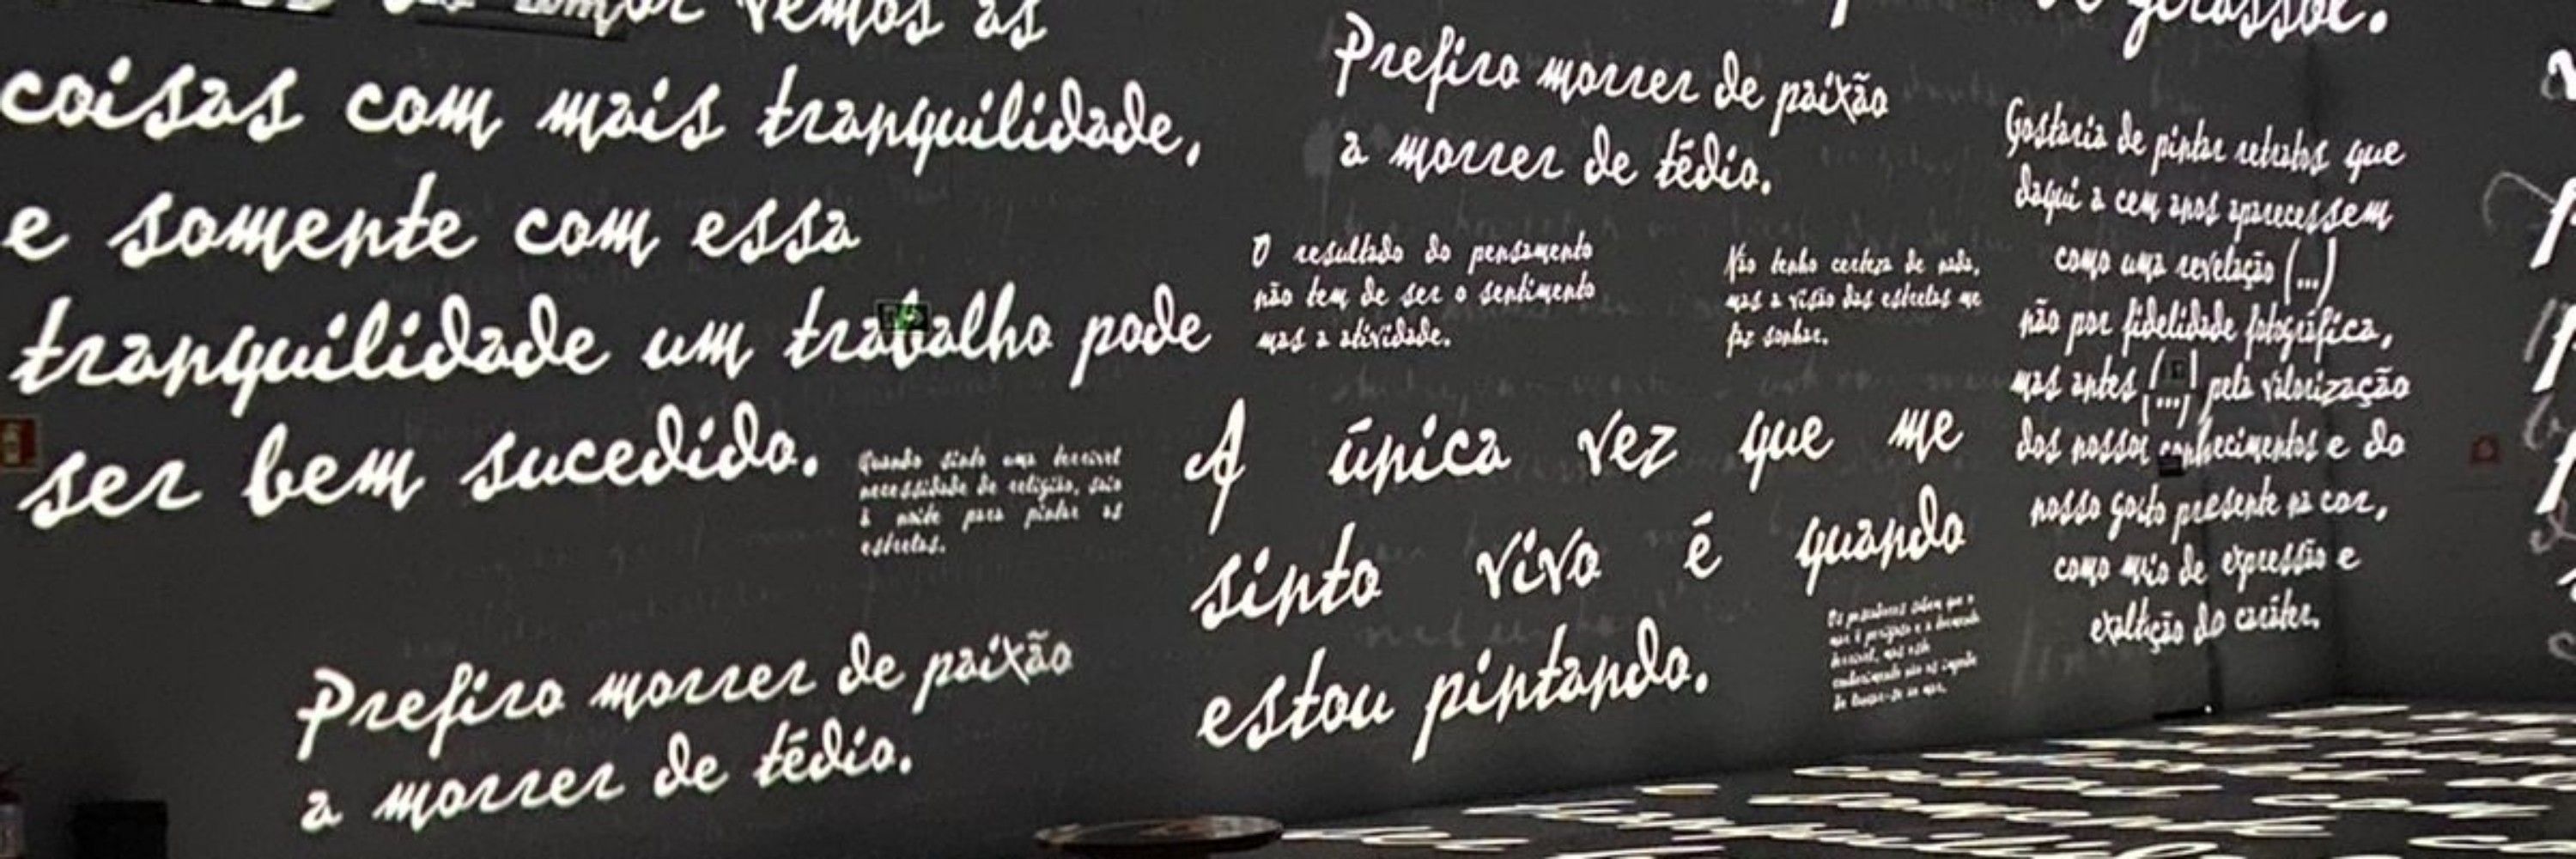 vemos as
coisas com mais tranquilidade,
e somente com essa
tranquilidade um trabalho pode
ser bem sucedido.
Quando sinto uma terrível
necessidade de religião, saio
à noite para pintar as
estrelas.
Prefiro morrer de paixão
a morrer de tédio.
girassol.
Prefiro morrer de paixão
a morrer de tédio.
O resultado do pensamento
não tem de ser o sentimento
mas a atividade.
Não tenho certeza de nada,
mas a visão das estrelas me
faz sonhar.
A única vez que me
sinto vivo é quando
estou pintando.
Os pescadores sabem que o
mar é perigoso e a tormenta
terrível, mas este
conhecimento não os impede
de lançar-se ao mar.
Gostaria de pintar retratos que
daqui a cem anos aparecessem
como uma revelação (...)
não por fidelidade fotográfica,
mas antes (...) pela valorização
dos nossos conhecimentos e do
nosso gosto presente na cor,
como meio de expressão e
exaltação do caráter.